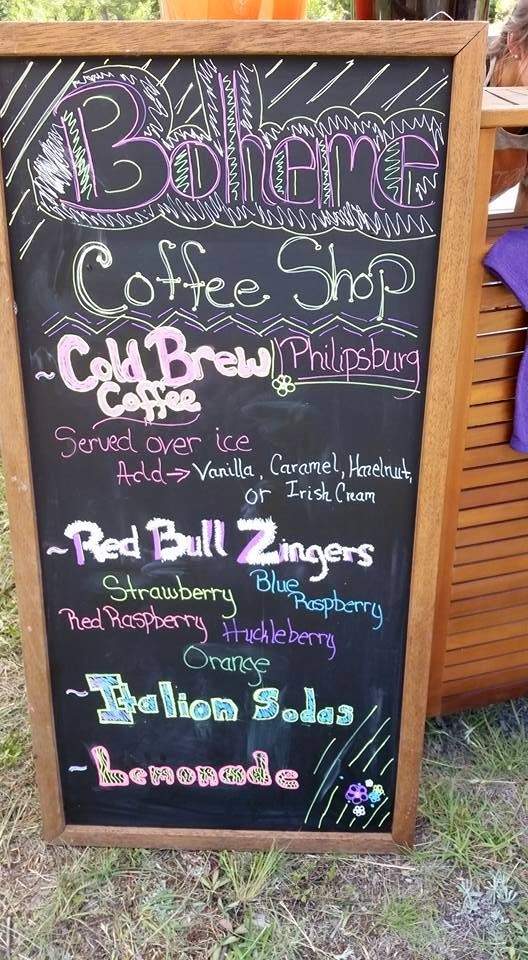 Boheme
Coffee Shop
~Cold Brew Philipsburg
Coffee
Served over ice
Add→Vanilla, Caramel, Hazelnut,
or Irish Cream
~Red Bull Zingers
Strawberry Blue Raspberry
Red Raspberry Huckleberry
Orange
~Italion Sodas
~Lemonade